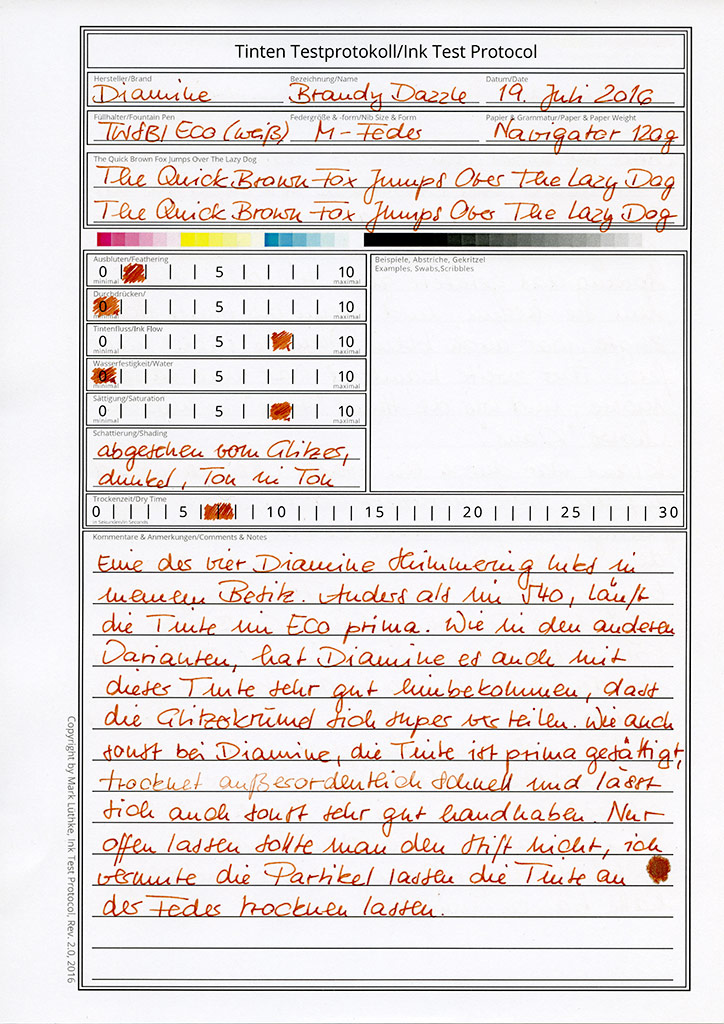 Tinten Testprotokoll/Ink Test Protocol
Hersteller/Brand Bezeichnung/Name Datum/Date
Diamine Brandy Dazzle 19. Juli 2016
Füllhalter/Fountain Pen Federgröße & -form/Nib Size & Form Papier & Grammatur/Paper & Paper Weight
TWSBI Eco (weiß) M-Feder Navigator 120g
The Quick Brown Fox Jumps Over The Lazy Dog
The Quick Brown Fox Jumps Over The Lazy Dog
The Quick Brown Fox Jumps Over The Lazy Dog
Ausbluten/Feathering
0 | | | | 5 | | | | 10
minimal maximal
Durchdrücken/
0 | | | | 5 | | | | 10
minimal maximal
Tintenfluss/Ink Flow
0 | | | | 5 | | | | 10
minimal maximal
Wasserfestigkeit/Water
0 | | | | 5 | | | | 10
minimal maximal
Sättigung/Saturation
0 | | | | 5 | | | | 10
minimal maximal
Schattierung/Shading
abgesehen vom Glitzer,
dunkel, Ton in Ton
Beispiele, Abstriche, Gekritzel
Examples, Swabs,Scribbles
Trockenzeit/Dry Time
0 | | | | 5 | | | | 10 | | | | 15 | | | | 20 | | | | 25 | | | | 30
in Sekunden/in Seconds
Kommentare & Anmerkungen/Comments & Notes
Eine der vier Diamine Shimmering Inks in
meinem Besitz. Anders als im 540, läuft
die Tinte im ECO prima. Wie in den anderen
Varianten, hat Diamine es auch mit
dieser Tinte sehr gut hinbekommen, dass
die Glitzerkrümel sich super verteilen. Wie auch
sonst bei Diamine, die Tinte ist prima gesättigt,
trocknet außerordentlich schnell und lässt
sich auch sonst sehr gut handhaben. Nur
offen lassen sollte man den Stift nicht, ich
vermute die Partikel lassen die Tinte an
der Feder trocknen lassen.
Copyright by Mark Lüthke, Ink Test Protocol, Rev. 2.0, 2016